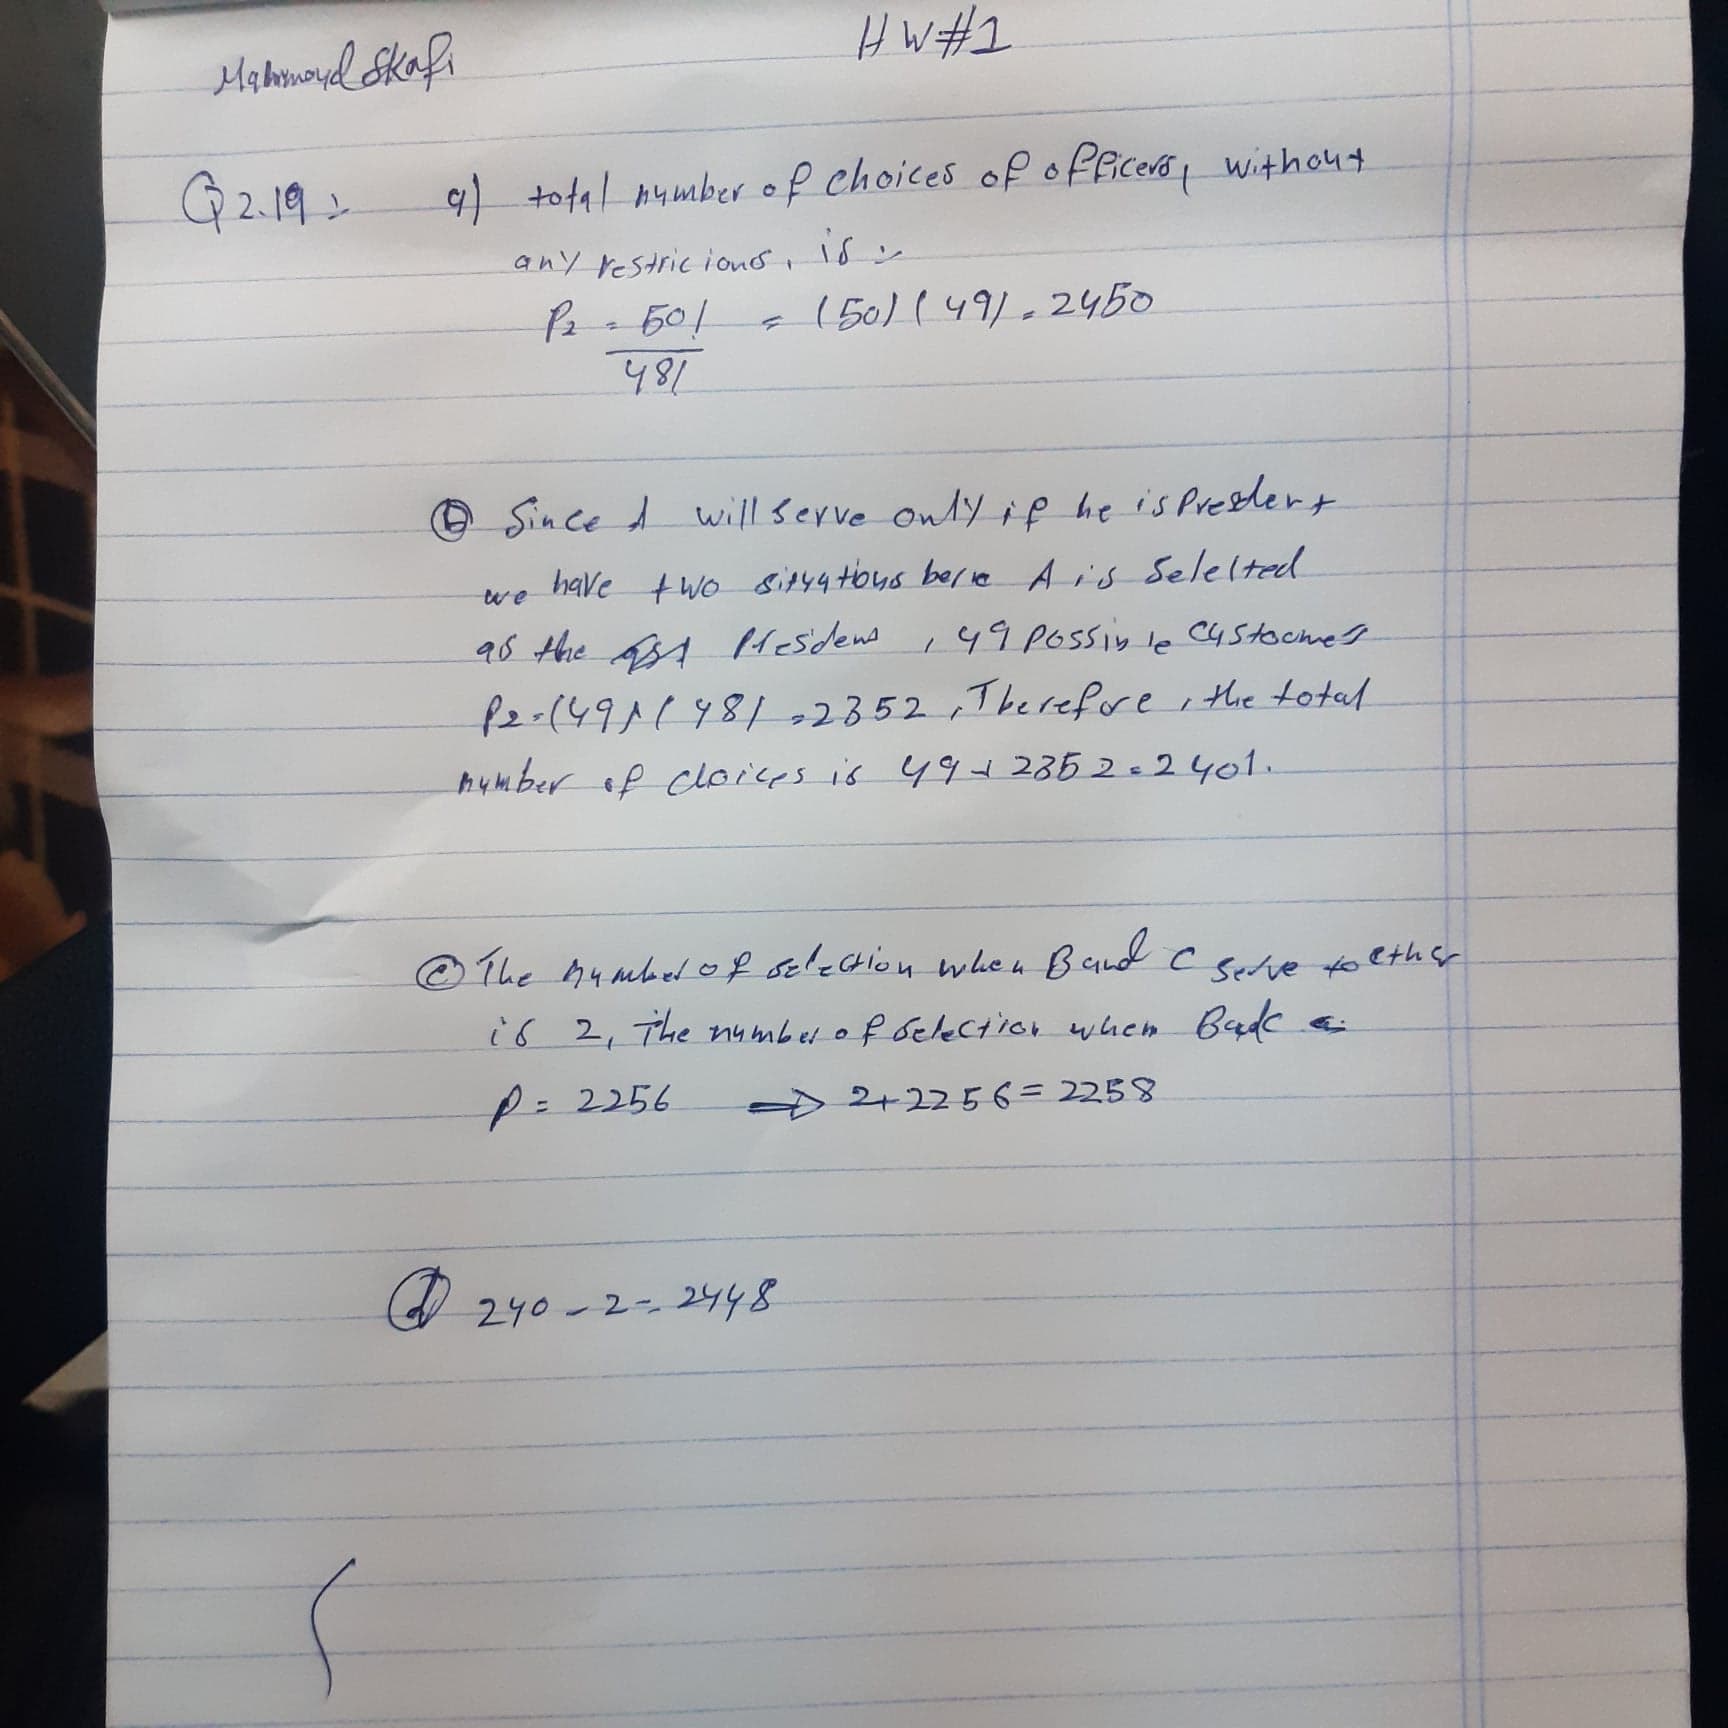 HW#1
Mahmoud Skafi
Q2.19:- a) total number of choices of officers, without
any restricions, is :-
P2 = 50! / 48! = (50)(49) = 2450
(b) Since A will serve only if he is Presdent
we have two situations here A is Selelted
as the Presidens , 49 Possible Custocmes
P2=(49)(48) =2352 , Therefore , the total
number of choices is 49 + 2352 = 2401.
(c) The number of selection when B and C serve toether
is 2, The number of selection when B and C
P = 2256 ⇒ 2+2256 = 2258
(d) 240 - 2 = 2448